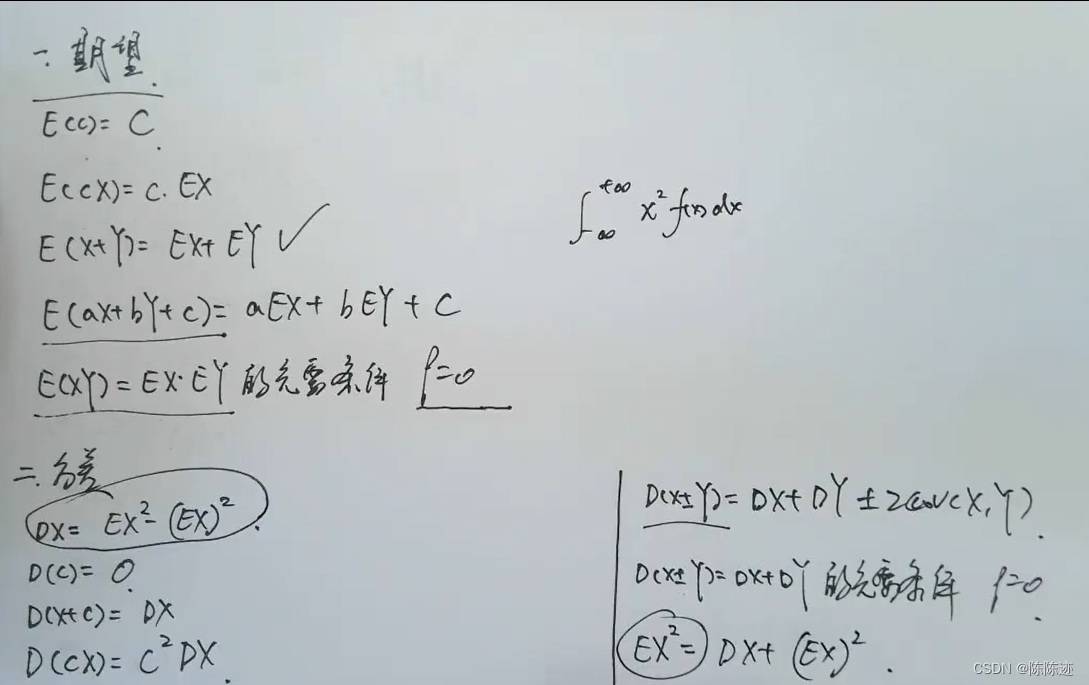 一. 期望.
E(c)= C.
E(cX)= c. EX
E(X+Y)= EX+ EY ✓
E(aX+bY+c)= aEX+ bEY + C
E(XY) = EX·EY 的充要条件 ρ=0
∫_{-∞}^{+∞} x² f(x) dx
二. 方差
DX= EX²- (EX)².
D(c)= 0.
D(X+c)= DX
D(cX)= C²DX.
D(X±Y)= DX+DY ± 2cov(X,Y).
D(X±Y)=DX+DY 的充要条件 ρ=0.
EX²= DX+ (EX)².
CSDN @陈陈迹